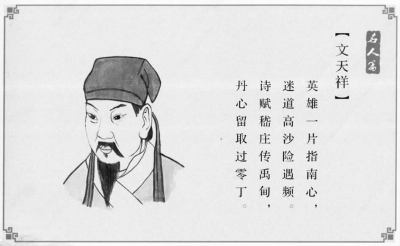 名人篇
【文天祥】
英雄一片指南心，
迷道高沙险遇频。
诗赋嵇庄传禹甸，
丹心留取过零丁。